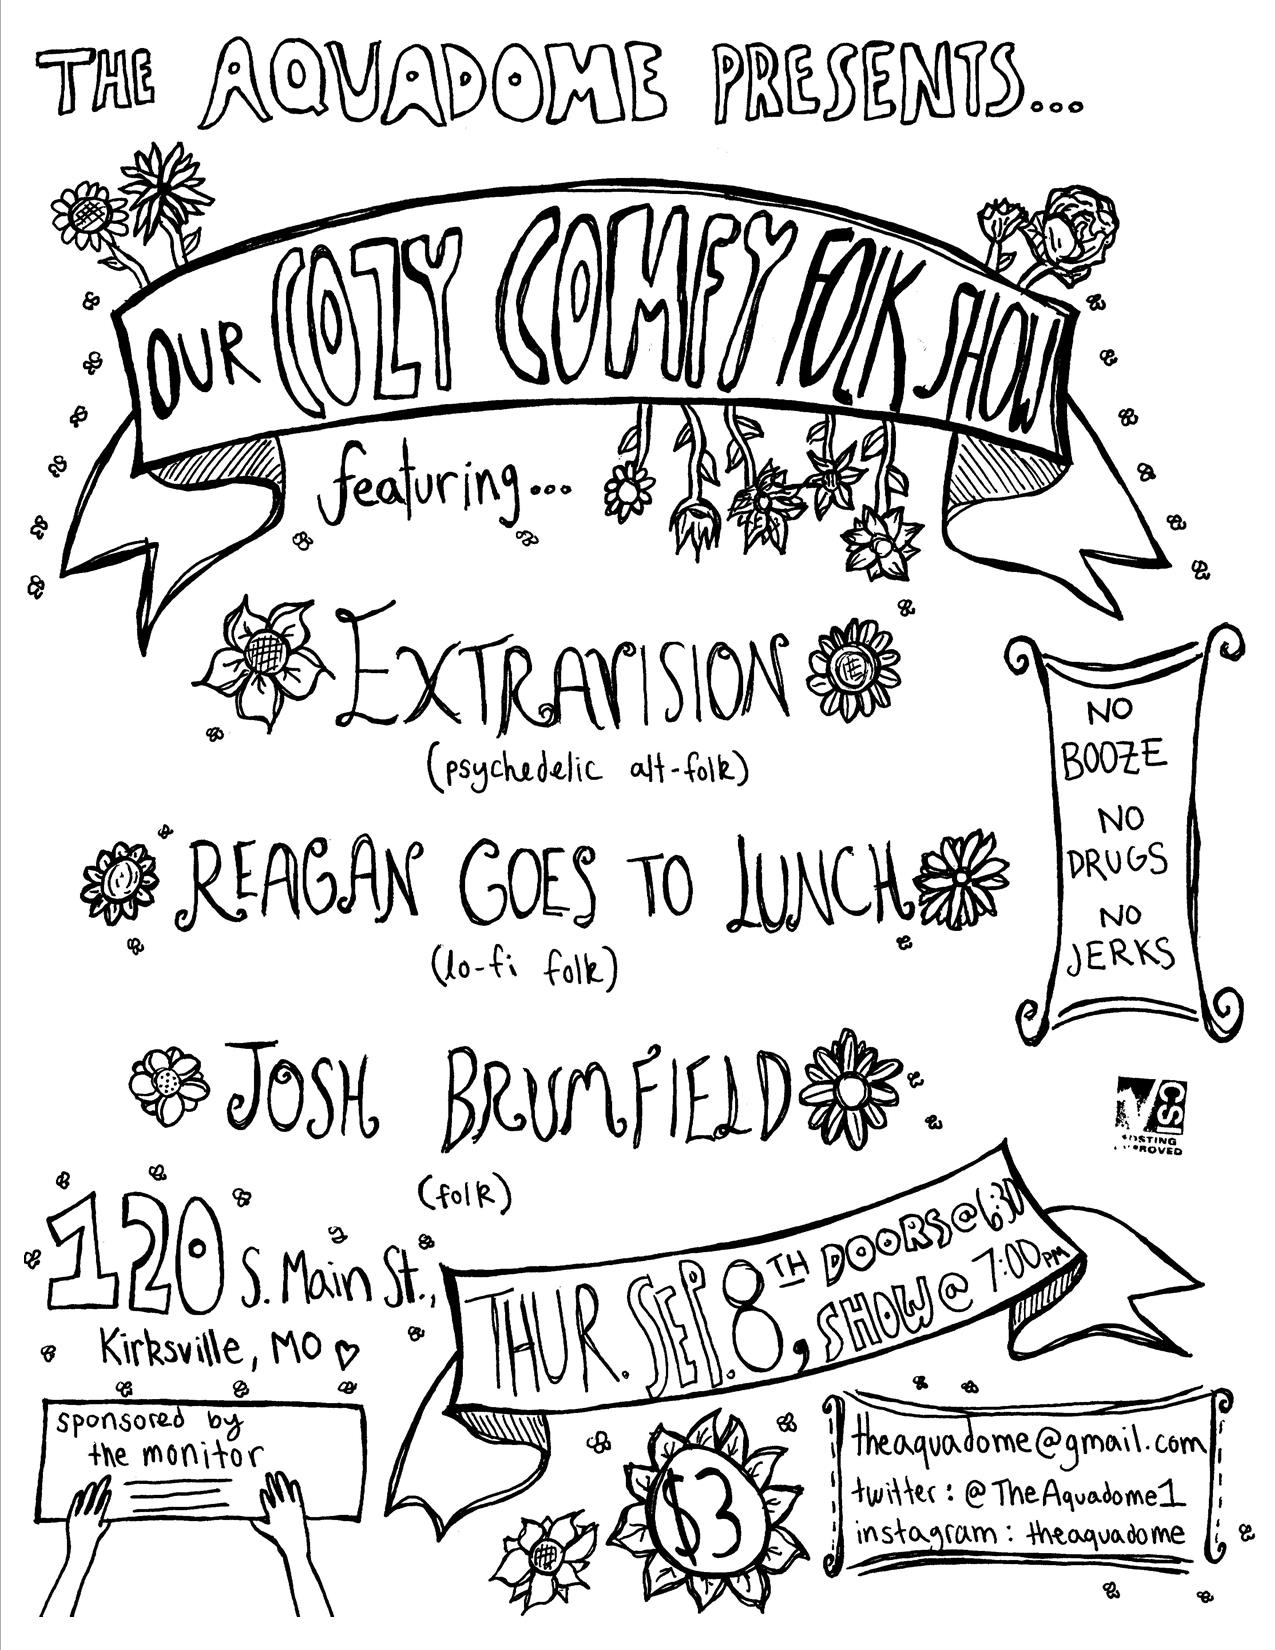 THE AQUADOME PRESENTS...
OUR COZY COMFY FOLK SHOW
featuring...
EXTRAVISION
(psychedelic alt-folk)
REAGAN GOES TO LUNCH
(lo-fi folk)
JOSH BRUMFIELD
(folk)
NO
BOOZE
NO
DRUGS
NO
JERKS
CSI
POSTING
APPROVED
120 S. Main St.,
Kirksville, MO
THUR. SEP. 8TH, DOORS @ 6:30
SHOW @ 7:00PM
$3
sponsored by
the monitor
theaquadome@gmail.com
twitter: @TheAquadome1
instagram: theaquadome